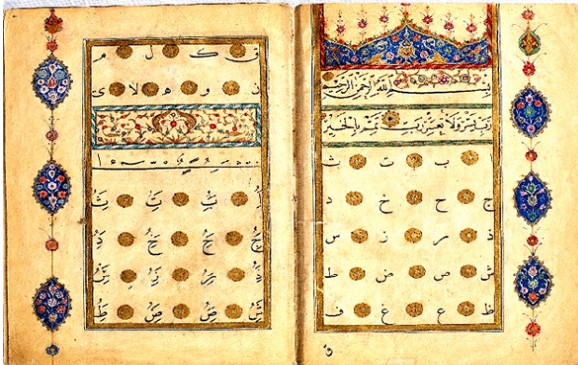 بسم الله الرحمن الرحيم
رب يسر ولا تعسر رب تمم بالخير
ا ب ت ث
ج ح خ د
ذ ر ز س
ش ص ض ط
ظ ع غ ف
ق
ق ك ل م
ن و ه لا ى
ا ب ت ث
ج ح خ د
ذ ر ز س
ش ص ض ط